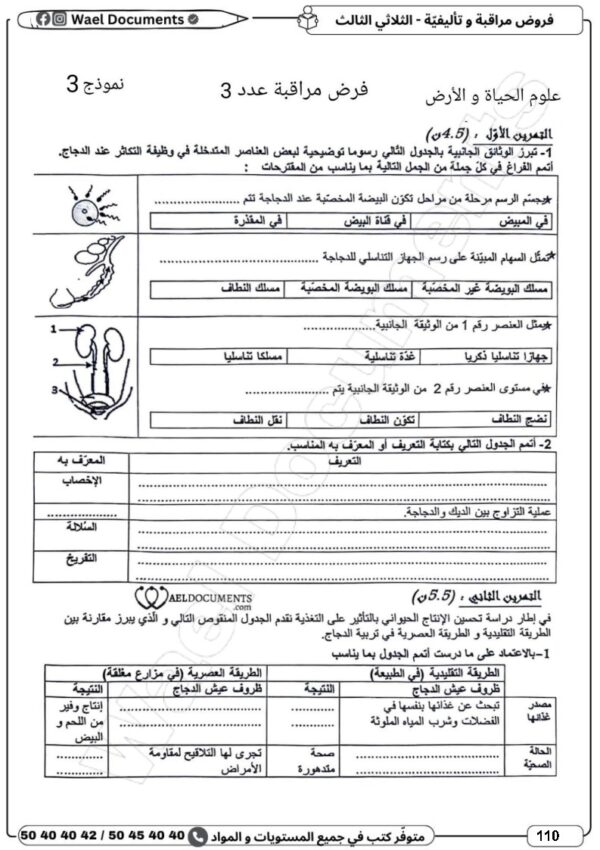 فروض مراقبة و تأليفيّة - الثلاثي الثالث
Wael Documents
علوم الحياة و الأرض
فرض مراقبة عدد 3
نموذج 3
التمرين الأوّل : (4.5ن)
1- تبرز الوثائق الجانبية بالجدول التالي رسوما توضيحية لبعض العناصر المتدخلة في وظيفة التكاثر عند الدجاج.
أتمم الفراغ في كلّ جملة من الجمل التالية بما يناسب من المقترحات :
★يجسّم الرسم مرحلة من مراحل تكوّن البيضة المخصّبة عند الدجاجة تتم ....................
في المبيض
في قناة البيض
في المقذرة
★تمثّل السهام المبيّنة على رسم الجهاز التناسلي للدجاجة ................................
مسلك البويضة غير المخصّبة
مسلك البويضة المخصّبة
مسلك النطاف
★يمثل العنصر رقم 1 من الوثيقة الجانبية....................
جهازا تناسليا ذكريا
غدّة تناسلية
مسلكا تناسليا
★في مستوى العنصر رقم 2 من الوثيقة الجانبية يتم ....................
نضج النطاف
تكوّن النطاف
نقل النطاف
1
2
3
2- أتمم الجدول التالي بكتابة التعريف أو المعرّف به المناسب.
التعريف
المعرّف به
الإخصاب
عملية التزاوج بين الديك والدجاجة.
السّلالة
التفريخ
التمرين الثاني : (5.5ن)
WAELDOCUMENTS
.com
في إطار دراسة تحسين الإنتاج الحيواني بالتأثير على التغذية نقدم الجدول المنقوص التالي و الّذي يبرز مقارنة بين
الطريقة التقليدية و الطريقة العصرية في تربية الدجاج.
1-بالاعتماد على ما درست أتمم الجدول بما يناسب
الطريقة التقليدية (في الطبيعة)
الطريقة العصرية (في مزارع مغلقة)
ظروف عيش الدجاج
النتيجة
ظروف عيش الدجاج
النتيجة
مصدر غذائها
تبحث عن غذائها بنفسها في الفضلات وشرب المياه الملوثة
إنتاج وفير من اللحم و البيض
الحالة الصحيّة
صحة متدهورة
تجرى لها التلاقيح لمقاومة الأمراض
110
متوفّر كتب في جميع المستويات و المواد
50 40 40 42 / 50 45 40 40
Wael Documents